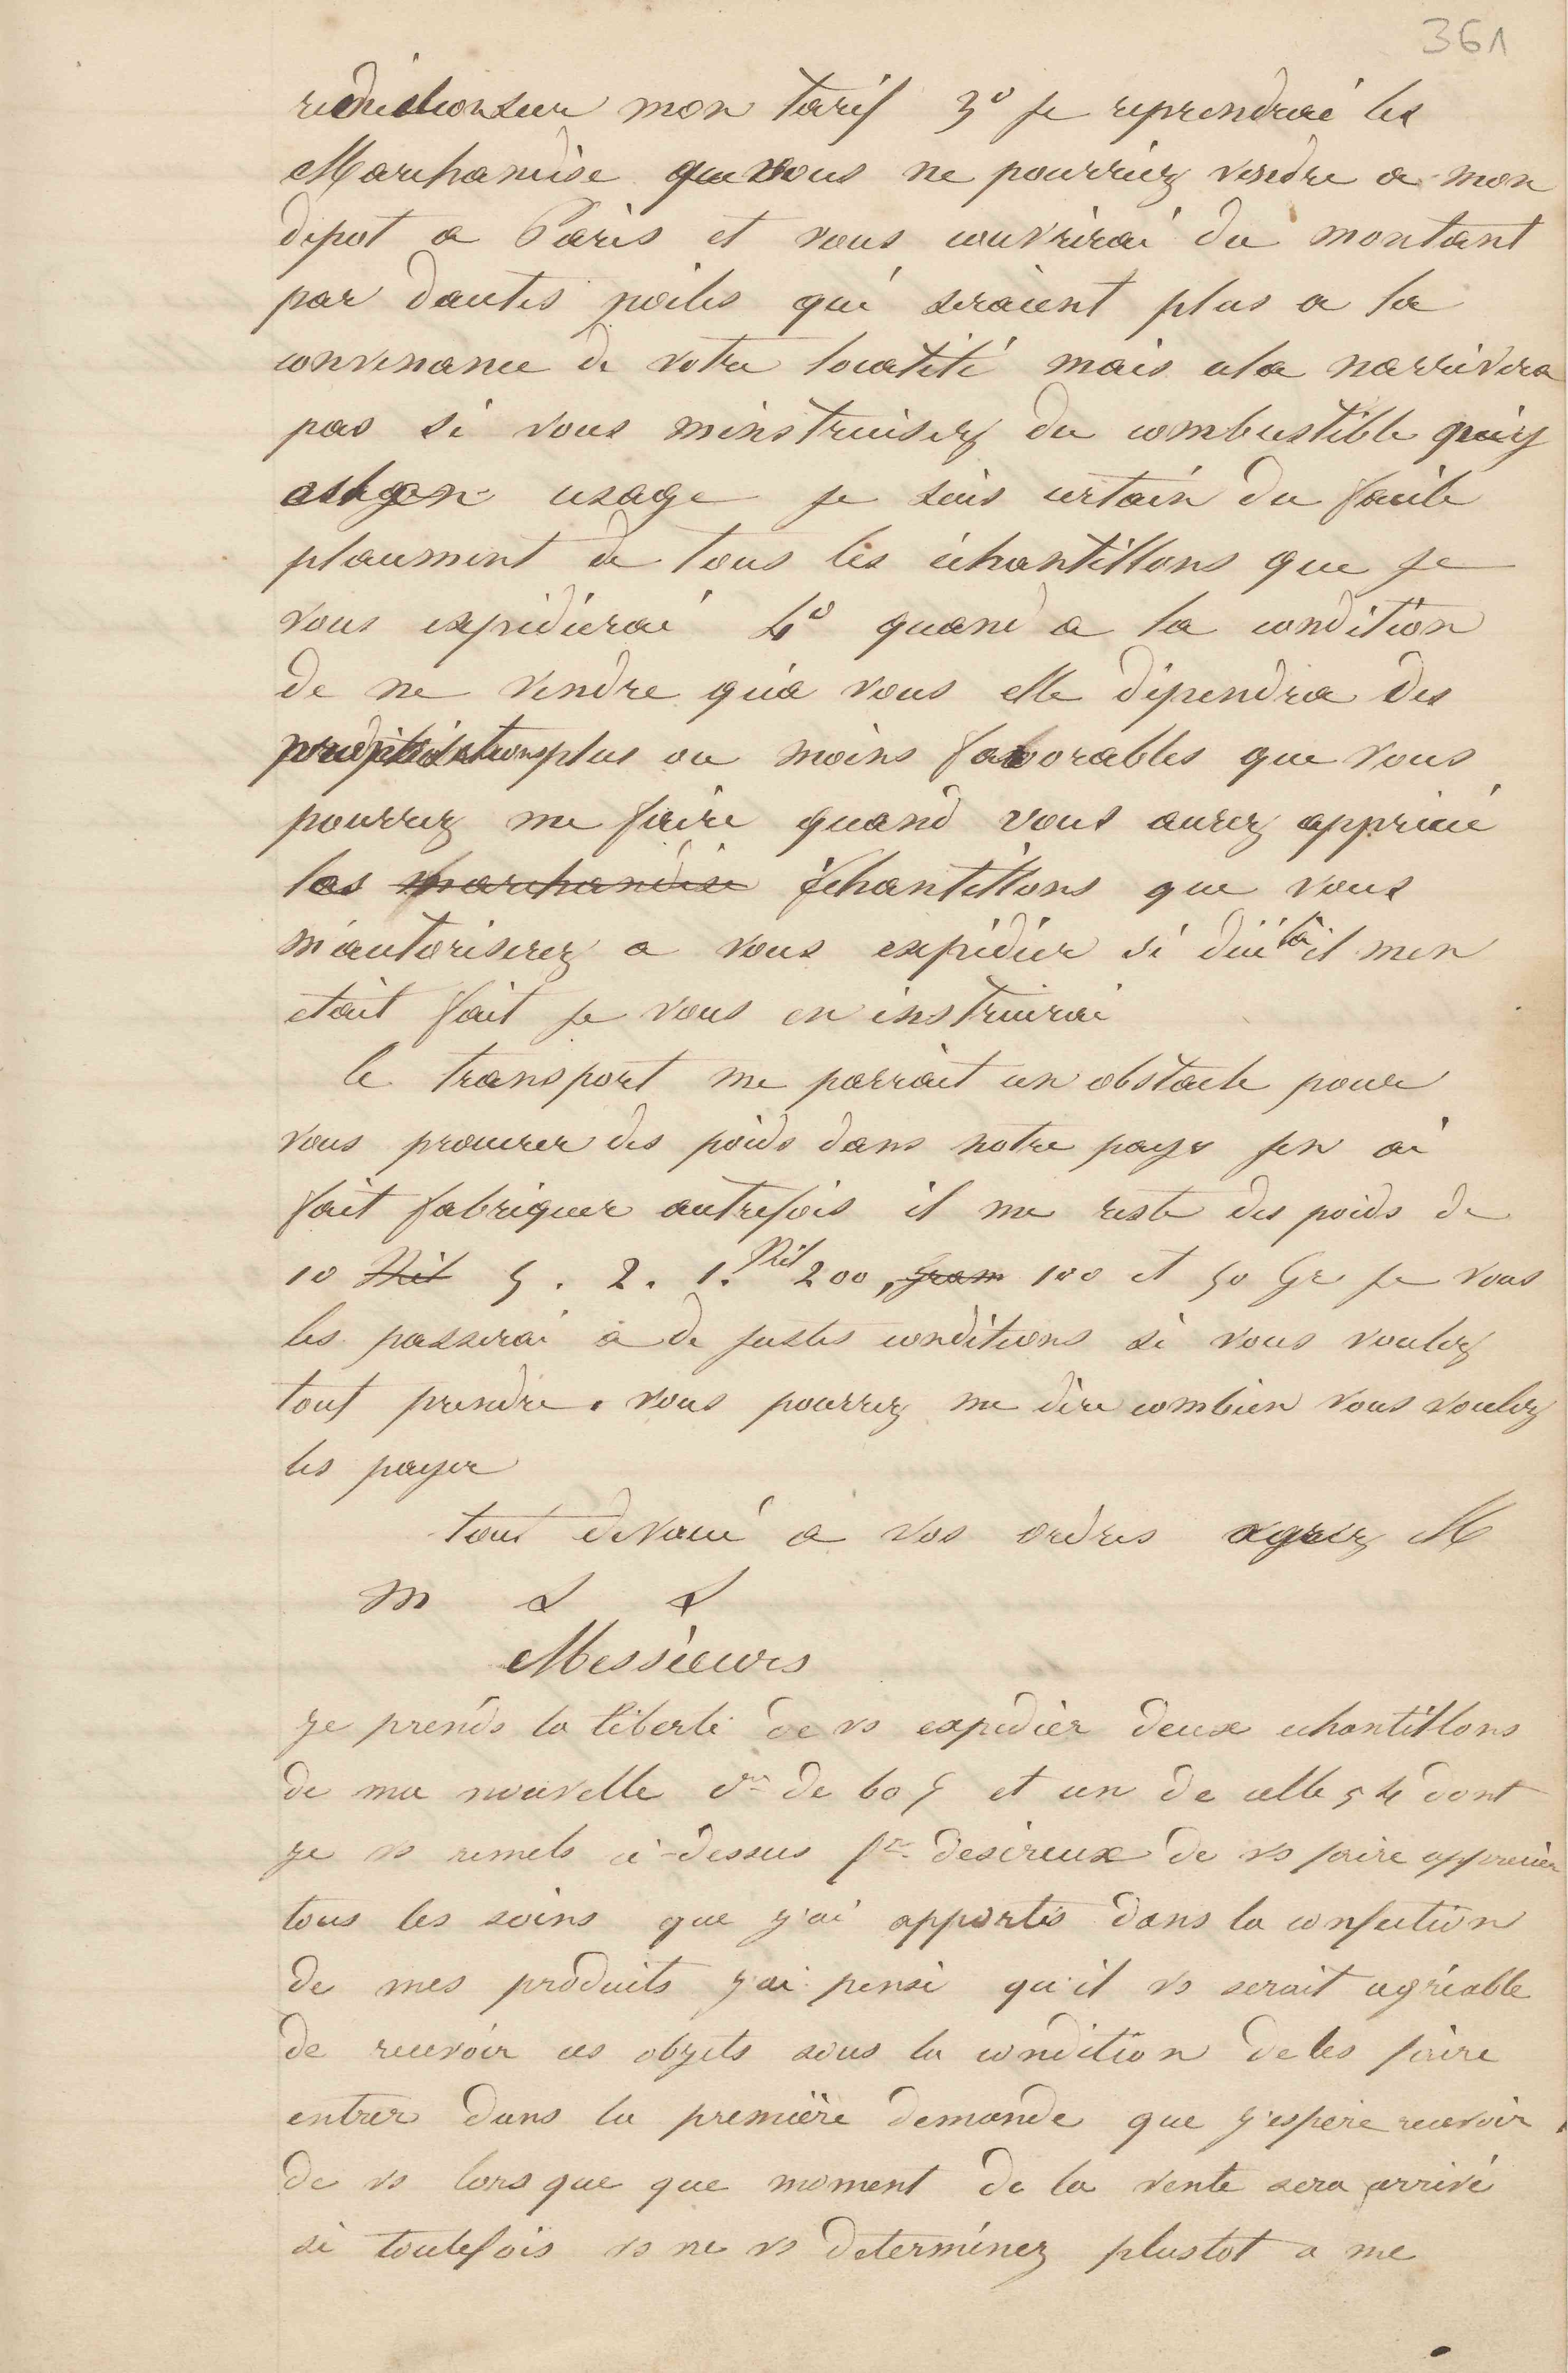 361
reduction sur mon tarif 3º je reprendrai les
Marchandise que vous ne pourriez vendre a mon
depot a Paris et vous couvrirai du montant
par dautes poiles qui seraient plus a la
convenance de votre localité mais cela narrivera
pas si vous minstruisez du combustible qui y
est en usage je suis certain du facile
placement de tous les échantillons que je
vous expédierai 4º quand a la condition
de ne vendre qu'a vous elle dépendra des
plus ou moins favorables que vous
pourrez me faire quand vous aurez apprécié
les marchandise échantillons que vous
m'autoriserez a vous expédier si dici là il men
etait fait je vous en instruirai
le transport me parrait un obstacle pour
vous procurer des poids dans notre pays jen ai
fait fabriquer autrefois il me reste des poids de
10 Kil 5 . 2 . 1. Kil 200, Gram 100 et 50 Gr je vous
les passerai a de justes conditions si vous voulez
tout prendre. vous pourrez me dire combien vous voulez
les payer
tout devoué a vos ordres agreez M
M
Messieurs
je prends la liberté de vs expedier deux echantillons
de ma nouvelle de 60 5 et un de celle 54 dont
je vs remets ci-dessus desireux de vs faire apprecier
tous les soins que j'ai apportés dans la confection
de mes produits j'ai pensé qu'il vs serait agréable
de recevoir ces objets sous la condition de les faire
entrer dans la première demande que j'espère recevoir
de vs lors que que moment de la vente sera arrivé
si toutefois vs ne vs determinez plustot a me